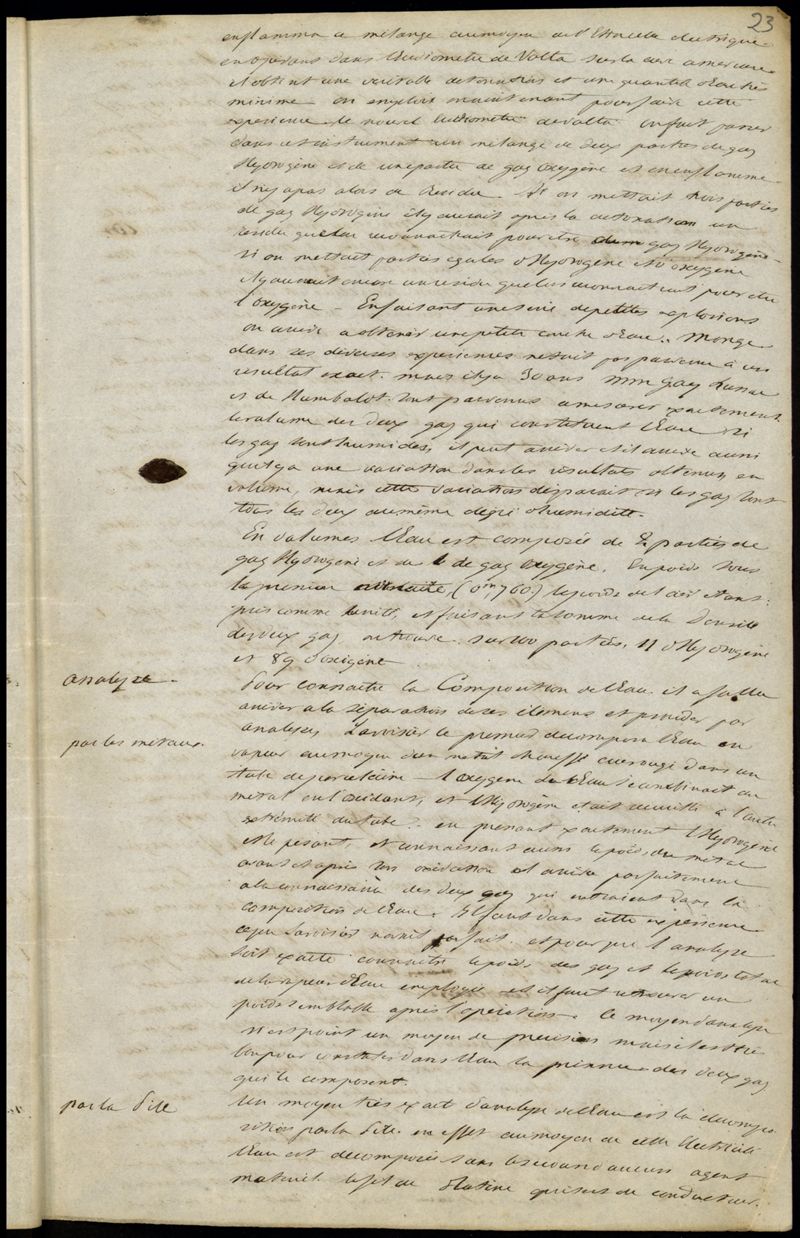 23
enflamma ce mélange au moyen de l'étincelle électrique
en opérant dans l'eudiometre de Volta sur la cuve a mercure
il obtint une veritable detonation et une quantité d'eau très
minime on emploie maintenant pour faire cette
experience le nouvel eudiometre de volta on fait passer
dans cet instrument un mélange de deux parties de gaz
Hydrogène et de une partie de gaz oxygène et on enflamme
il n'y a pas alors de residu. Si on mettait trois parties
de gaz Hydrogène il y aurait après la detonation un
residu que l'on reconnaitrait pour être du gaz Hydrogène
si on mettait parties egales d'Hydrogène et d'oxygène
il y aurait encore un residu que l'on reconnaitrait pour être
l'oxygène – En faisant une serie de petites explosions
on arrive a obtenir une petite couche d'eau. Monge
dans ses diverses experiences n'etait pas parvenu à un
resultat exact. mais il y a 30 ans mm gay Lussac
et de Humboldt sont parvenus a mesurer exactement
le volume des deux gaz qui constituent l'Eau si
les gaz sont humides, il peut arriver et il arrive aussi
qu'il y a une variation dans les résultats obtenus en
volume, mais cette variation disparait si les gaz sont
tous les deux au même degré d'humidité.
En volumes l'Eau est composée de 2 parties de
gaz Hydrogène et de 1 de gaz oxygène. En poids sous
la pression (0m,760) le poids de l'air étant
pris comme unité, et faisant la somme de la Densité
des deux gaz on trouve sur 100 parties, 11 d'Hydrogène
et 89 d'oxigène
analyse.
Pour connaitre la Composition de l'Eau il a fallu
arriver a la séparation de ses élémens et procéder par
analyse,
par les métaux.
Lavoisier le premier decomposa l'Eau en
vapeur au moyen d'un métal chauffé au rouge dans un
tube de porcelaine – l'oxygène de l'Eau se combinait au
métal en l'oxidant, et l'Hydrogène était recueilli à l'autre
extremité du tube. en prenant exactement l'Hydrogène
et le pesant, et connaissant aussi le poids du métal
avant et après son oxidation on arrive parfaitement
a la connaissance des deux gaz qui entraient dans la
composition de l'Eau. Il faut dans cette experience
ce que Lavoisier n'avait pas fait. et pour que l'analyse
soit exacte connaitre le poids des gaz et le poids total
de la vapeur d'Eau employée et il faut retrouver un
poids semblable après l'operation. Ce moyen d'analyse
n'est point un moyen de precision mais il est très
bon pour constater dans l'Eau la présence des deux gaz
qui le composent.
par la Pile
Un moyen très exact d'analyse de l'Eau est la decompo
sition par la Pile. en effet au moyen de cette électricité
l'Eau est decomposée sans le secours d'aucun agent
materiel le fil de Platine qui sert de conducteur